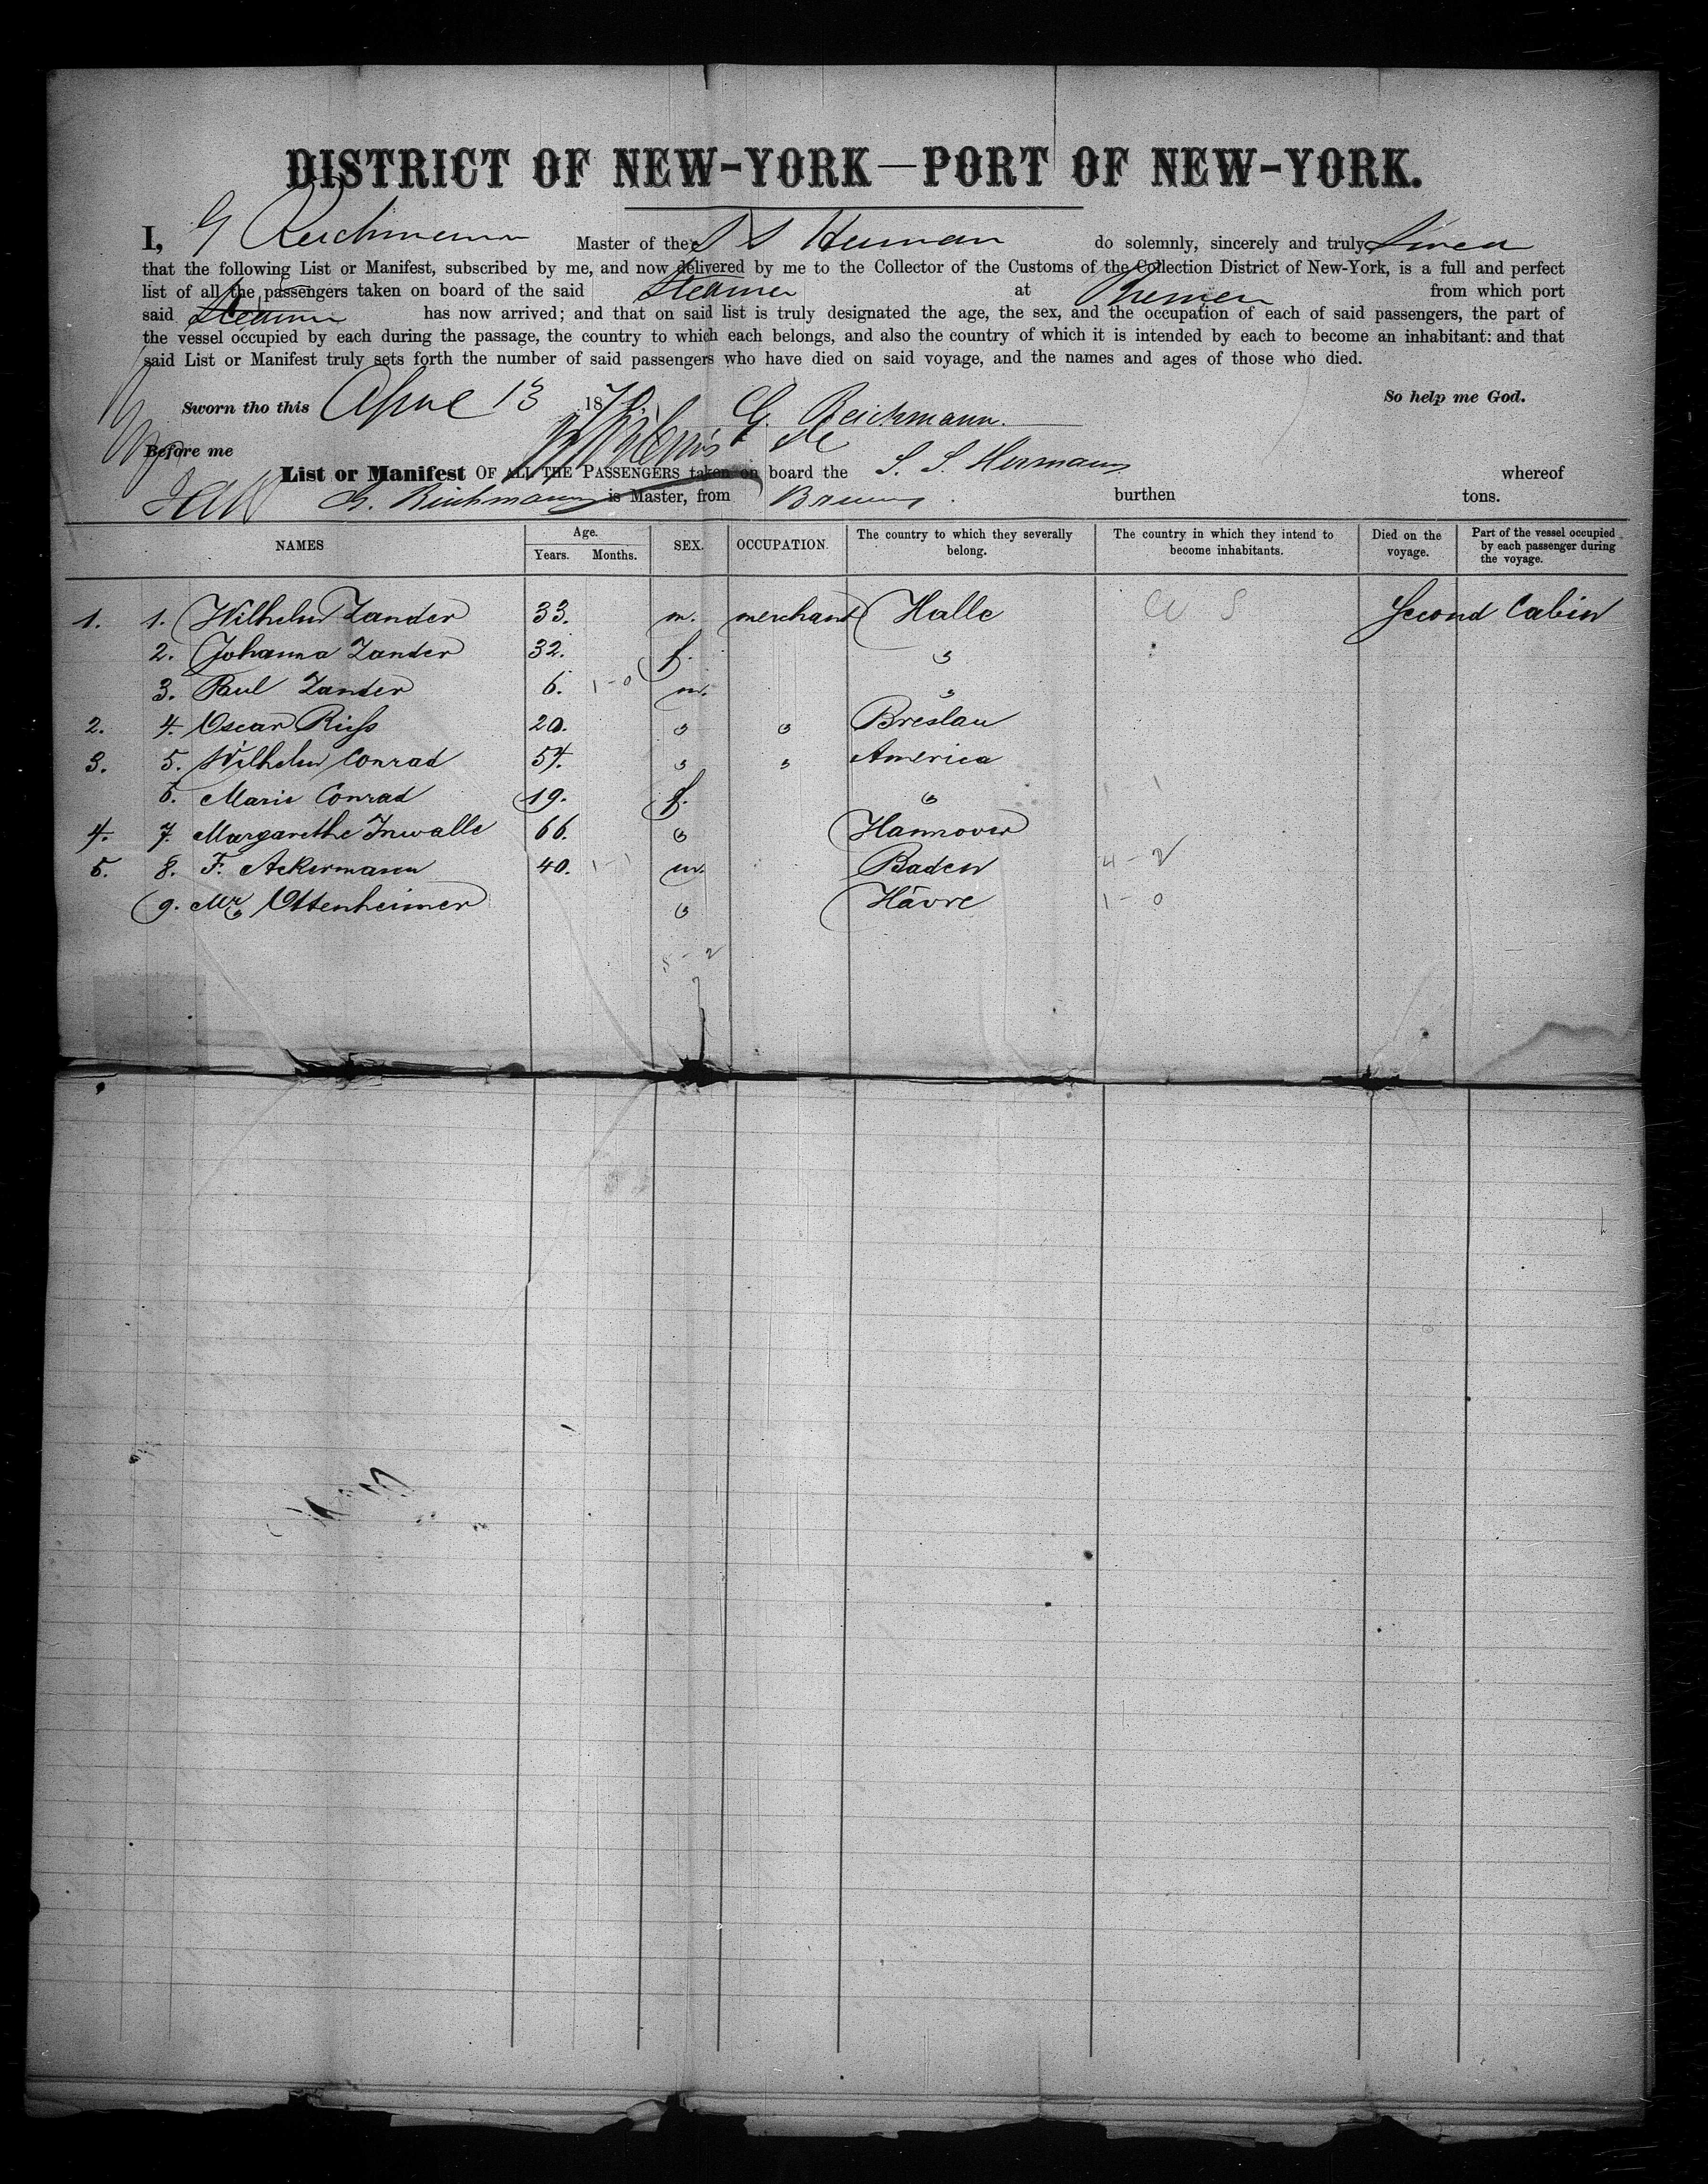 DISTRICT OF NEW-YORK—PORT OF NEW-YORK.
I, G Reichmann Master of the S S Herman do solemnly, sincerely and truly swear
that the following List or Manifest, subscribed by me, and now delivered by me to the Collector of the Customs of the Collection District of New-York, is a full and perfect
list of all the passengers taken on board of the said Steamer at Bremen from which port
said Steamer has now arrived; and that on said list is truly designated the age, the sex, and the occupation of each of said passengers, the part of
the vessel occupied by each during the passage, the country to which each belongs, and also the country of which it is intended by each to become an inhabitant: and that
said List or Manifest truly sets forth the number of said passengers who have died on said voyage, and the names and ages of those who died.
So help me God.
Sworn tho this April 13 187 G. Reichmann.
Before me
List or Manifest OF ALL THE PASSENGERS taken on board the S. S. Hermann whereof
G. Reichmann is Master, from Bremen. burthen tons.
NAMES Age. Years. Months. SEX. OCCUPATION. The country to which they severally belong. The country in which they intend to become inhabitants. Died on the voyage. Part of the vessel occupied by each passenger during the voyage.
1. 1. Wilhelm Zander 33. m. merchant Halle U S Second Cabin
2. Johanna Zander 32. f. "
3. Paul Zander 6. 1-0 m. "
2. 4. Oscar Riess 20. " " Breslau
3. 5. Wilhelm Conrad 54. " " America
6. Marie Conrad 19. f. " 1 1
4. 7. Margarethe 66. " Hannover
5. 8. F. Ackermann 40. 1-1 m. Baden 4-2
9. Mr. Ottenheimer " Hâvre 1-0
5-2